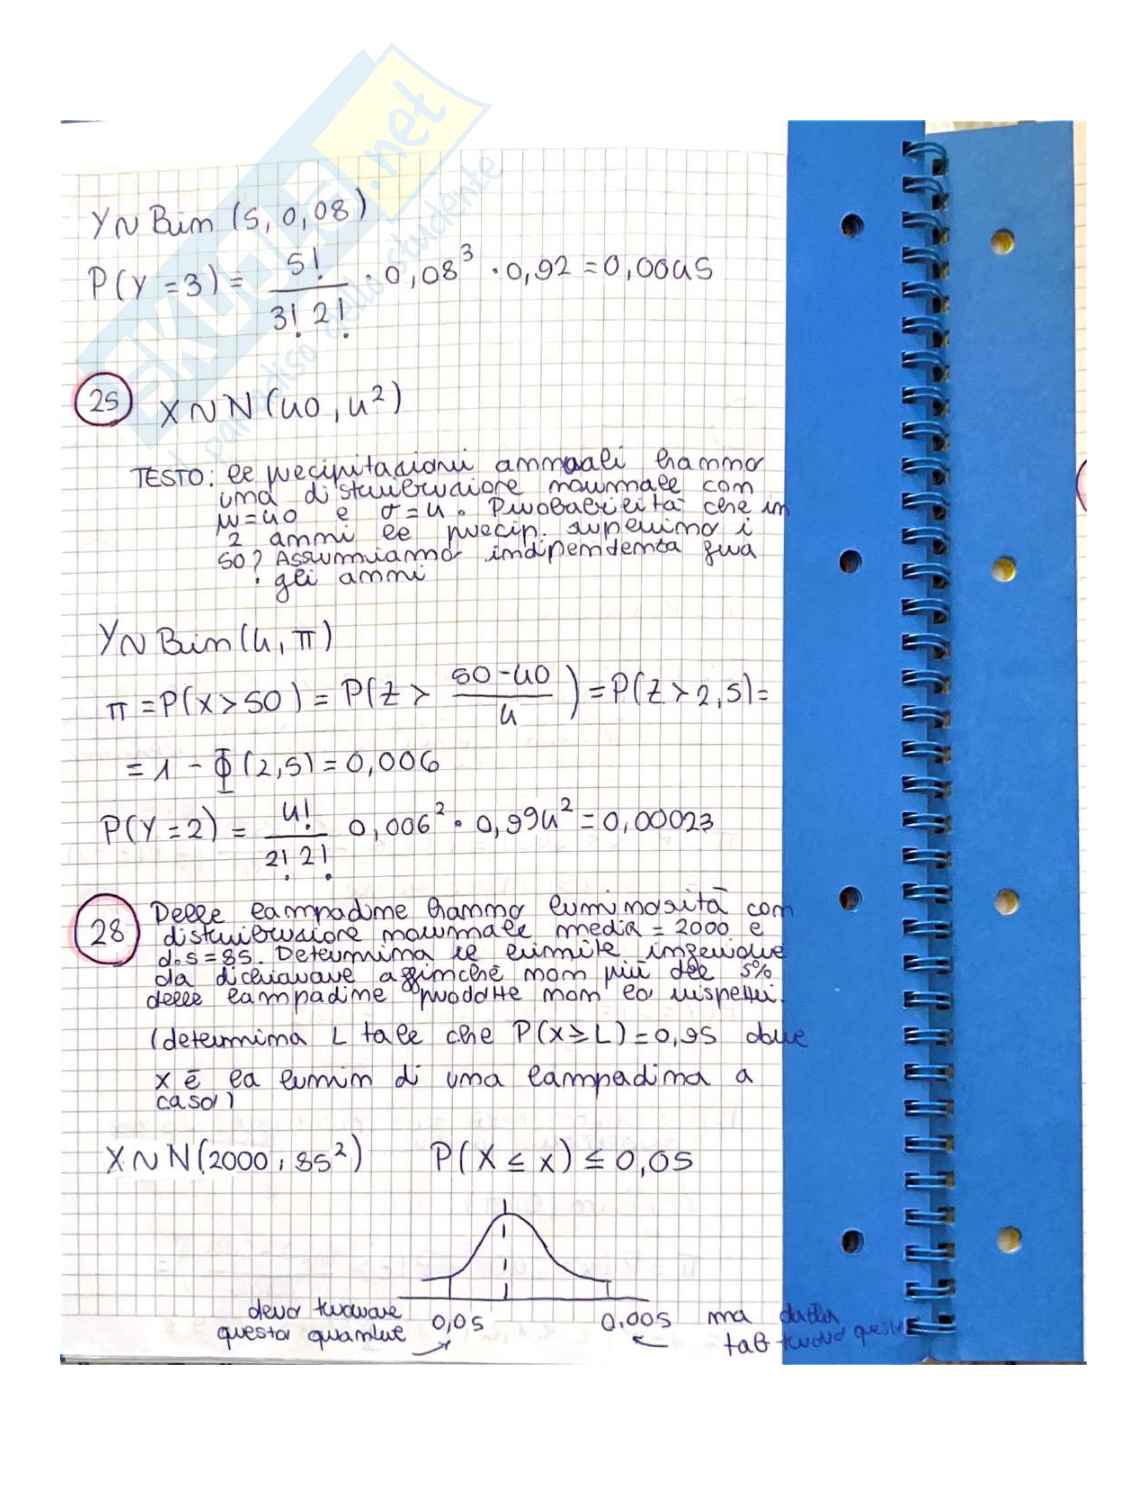 SKUOLA.net
il paradiso dello studente
Y~Bin (5, 0,08)
P(Y=3) = 5!/(3! 2!) · 0,08³ · 0,92 = 0,0045
25 X~N(40, 4²)
TESTO: le precipitazioni annuali hanno
una distribuzione normale con
μ=40 e σ=4. Probabilità che in
2 anni le precip. superino i
50? Assumiamo indipendenza fra
gli anni
Y~Bin(4, π)
π = P(X > 50) = P(Z > (50-40)/4) = P(Z > 2,5) =
= 1 - Φ(2,5) = 0,006
P(Y=2) = 4!/(2! 2!) 0,006² · 0,994² = 0,00023
28 Delle lampadine hanno luminosità con
distribuzione normale media = 2000 e
d.s = 85. Determina il limite inferiore
da dichiarare affinché non più del 5%
delle lampadine prodotte non lo rispetti.
(determina L tale che P(X≥L) = 0,95 dove
X è la lumin di una lampadina a
caso)
X~N(2000, 85²) P(X ≤ x) ≤ 0,05
devo trovare 0,05 0,005 ma dalla
questo quantile tab trovo questo